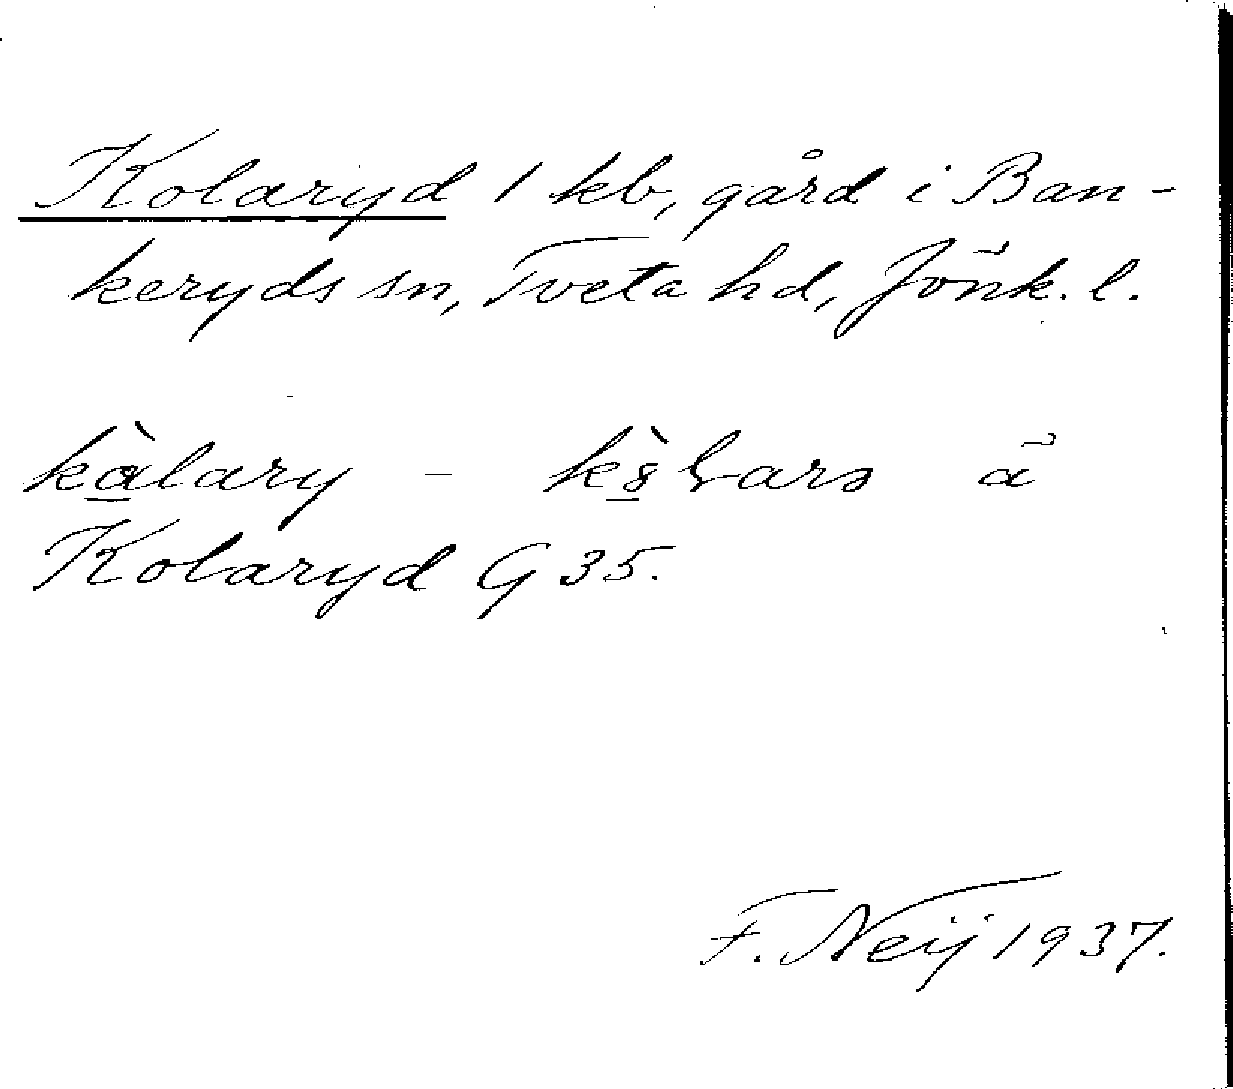 Kolaryd 1 kb, gård i Ban-
keryds sn, Tveta hd, Jönk. l.
kàlary - ā
Kolaryd G 35.
F. Neij 1937.